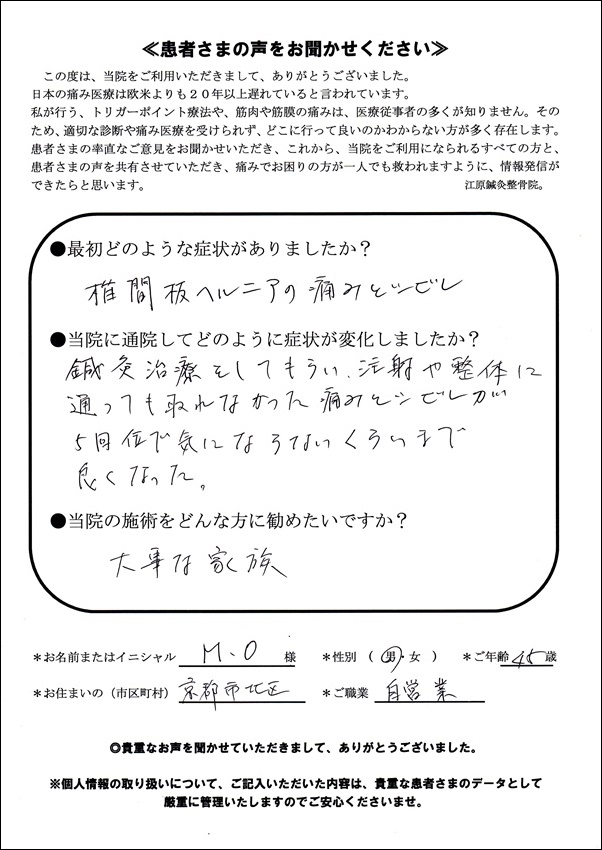 ≪患者さまの声をお聞かせください≫
この度は、当院をご利用いただきまして、ありがとうございました。
日本の痛み医療は欧米よりも２０年以上遅れていると言われています。
私が行う、トリガーポイント療法や、筋肉や筋膜の痛みは、医療従事者の多くが知りません。その
ため、適切な診断や痛み医療を受けられず、どこに行って良いのかわからない方が多く存在します。
患者さまの率直なご意見をお聞かせいただき、これから、当院をご利用になられるすべての方と、
患者さまの声を共有させていただき、痛みでお困りの方が一人でも救われますように、情報発信が
できたらと思います。 江原鍼灸整骨院。
●最初どのような症状がありましたか？
椎間板ヘルニアの痛みとシビレ
●当院に通院してどのように症状が変化しましたか？
鍼灸治療をしてもらい、注射や整体に
通っても取れなかった痛みとシビレが
5回位で気にならないくらいまで
良くなった。
●当院の施術をどんな方に勧めたいですか？
大事な家族
＊お名前またはイニシャル M.O 様 ＊性別（男・女） ＊ご年齢 45 歳
＊お住まいの（市区町村） 京都市北区 ＊ご職業 自営業
◎貴重なお声を聞かせていただきまして、ありがとうございました。
※個人情報の取り扱いについて、ご記入いただいた内容は、貴重な患者さまのデータとして
厳重に管理いたしますのでご安心くださいませ。